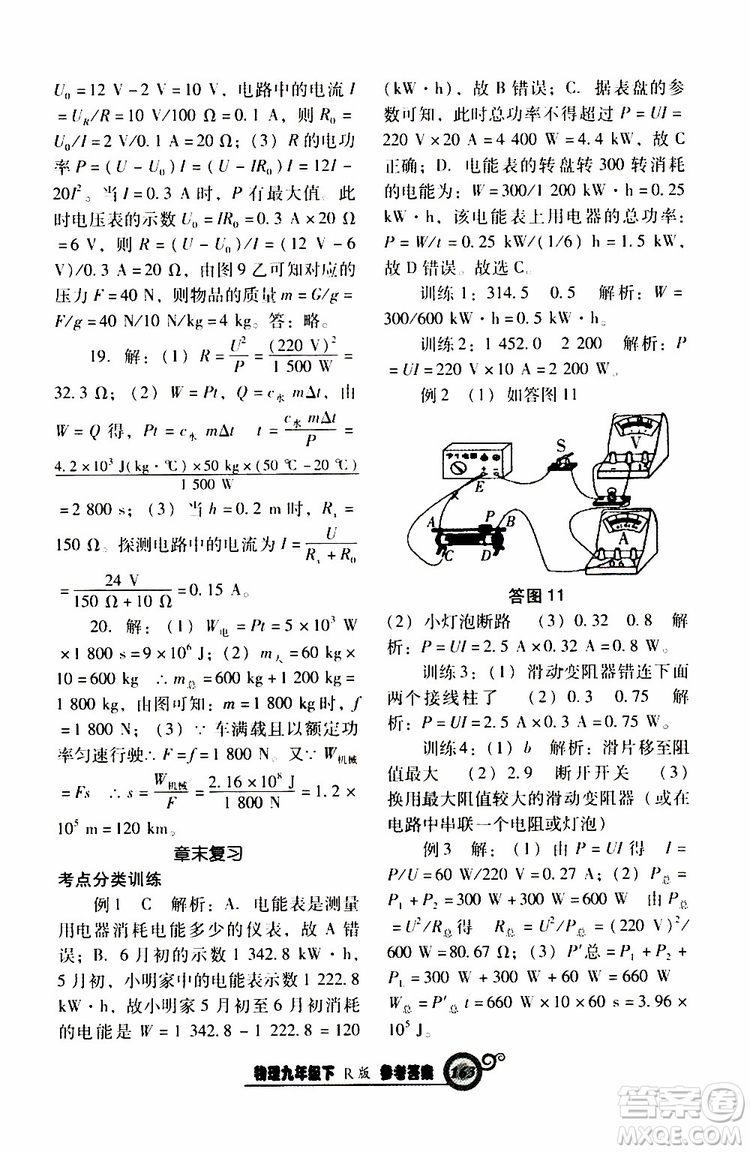 U₀=12 V-2 V=10 V，电路中的电流 I
=U_R/R=10 V/100 Ω=0.1 A，则 R₀=
U₀/I=2 A/0.1 A=20 Ω；(3) R 的电功
率 P=(U-U₀)I=(U-IR₀)I=12I-
20I²。当 I=0.3 A 时，P 有最大值。此
时电压表的示数 U₀=IR₀=0.3 A×20 Ω
=6 V，R=(U-U₀)/I=(12 V-6
V)/0.3 A=20 Ω，由图 9 乙可知对应的
压力 F=40 N，则物品的质量 m=G/g=
F/g=40 N/10 N/kg=4 kg。答：略。
19. 解：(1) R=U²/P=(220 V)²/1 500 W=
32.3 Ω；(2) W=Pt，Q=c水 mΔt，由
W=Q 得，Pt=c水 mΔt t=c水 mΔt/P=
4.2×10³ J(kg·℃)×50 kg×(50 ℃-20 ℃)/1 500 W
=2 800 s；(3) 当 h=0.2 m 时，Rₓ=
150 Ω。探测电路中的电流为 I=U/(Rₓ+R₀)
=24 V/(150 Ω+10 Ω)=0.15 A。
20. 解：(1) W电=Pt=5×10³ W
×1 800 s=9×10⁶ J；(2) m人=60 kg×
10=600 kg m总=600 kg+1 200 kg=
1 800 kg，由图可知：m=1 800 kg 时，f
=1 800 N；(3) ∵ 车满载且以额定功
率匀速行驶∴F=f=1 800 N 又∵W机械
=Fs ∴s=W机械/F=2.16×10⁸ J/1 800 N=1.2×
10⁵ m=120 km。
章末复习
考点分类训练
例 1 C 解析：A. 电能表是测量
用电器消耗电能多少的仪表，故 A 错
误；B. 6 月初的示数 1 342.8 kW·h，
5 月初，小明家中的电能表示数 1 222.8
kW·h，故小明家 5 月初至 6 月初消耗
的电能是 W=1 342.8-1 222.8=120
(kW·h)，故 B 错误；C. 据表盘的参
数可知，此时总功率不得超过 P=UI=
220 V×20 A=4 400 W=4.4 kW，故 C
正确；D. 电能表的转盘转 300 转消耗
的电能为：W=300/1 200 kW·h=0.25
kW·h，该电能表上用电器的总功率：
P=W/t=0.25 kW/(1/6) h=1.5 kW，
故 D 错误。故选 C。
训练 1：314.5 0.5 解析：W=
300/600 kW·h=0.5 kW·h
训练 2：1 452.0 2 200 解析：P
=UI=220 V×10 A=2 200 W
例 2 (1) 如答图 11
E
S
V
A
P
B
A
C
D
答图 11
(2) 小灯泡断路 (3) 0.32 0.8 解
析：P=UI=2.5 A×0.32 A=0.8 W
训练 3：(1) 滑动变阻器错连下面
两个接线柱了 (2) 0.3 0.75 解
析：P=UI=2.5 A×0.3 A=0.75 W。
训练 4：(1) b 解析：滑片移至阻
值最大 (2) 2.9 断开开关 (3)
换用最大阻值较大的滑动变阻器（或在
电路中串联一个电阻或灯泡）
例 3 解：(1) 由 P=UI 得 I=
P/U=60 W/220 V=0.27 A；(2) P总=
P₁+P₂=300 W+300 W=600 W 由 P总
=U²/R总 得 R总=U²/P总=(220 V)²/
600 W=80.67 Ω；(3) P′总=P₁+P₂
+P₃+P₄=300 W+300 W+60 W
W总=P′总 t=660 W×10×60 s=3.96×
10⁵ J。
物理九年级下 R 版 参考答案 163
答案圈
MXQE.COM